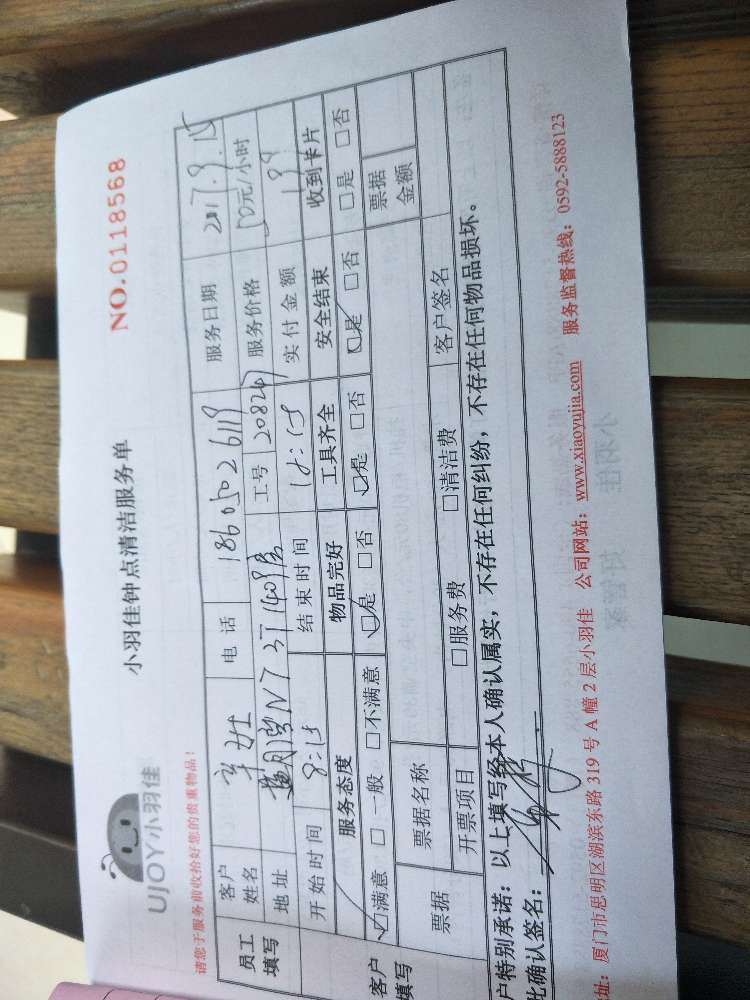 UJOY小羽佳
小羽佳钟点清洁服务单
NO.0118568
请您于服务前收拾好您的贵重物品!
员工填写 客户姓名 电话 18605026119 服务日期 2017.9.15
地址 工号 208247 服务价格 50元/小时
开始时间 8:15 结束时间 12:15 实付金额 199
服务态度 物品完好 工具齐全 安全结束 收到卡片
客户填写 ☑满意 □一般 □不满意 ☑是 □否 ☑是 □否 ☑是 □否 □是 □否
票据 票据名称 票据金额
开票项目 □服务费 □清洁费 客户签名
户特别承诺:以上填写经本人确认属实,不存在任何纠纷,不存在任何物品损坏。
此确认签名:
址:厦门市思明区湖滨东路319号A幢2层小羽佳 公司网站:www.xiaoyujia.com 服务监督热线:0592-5888123